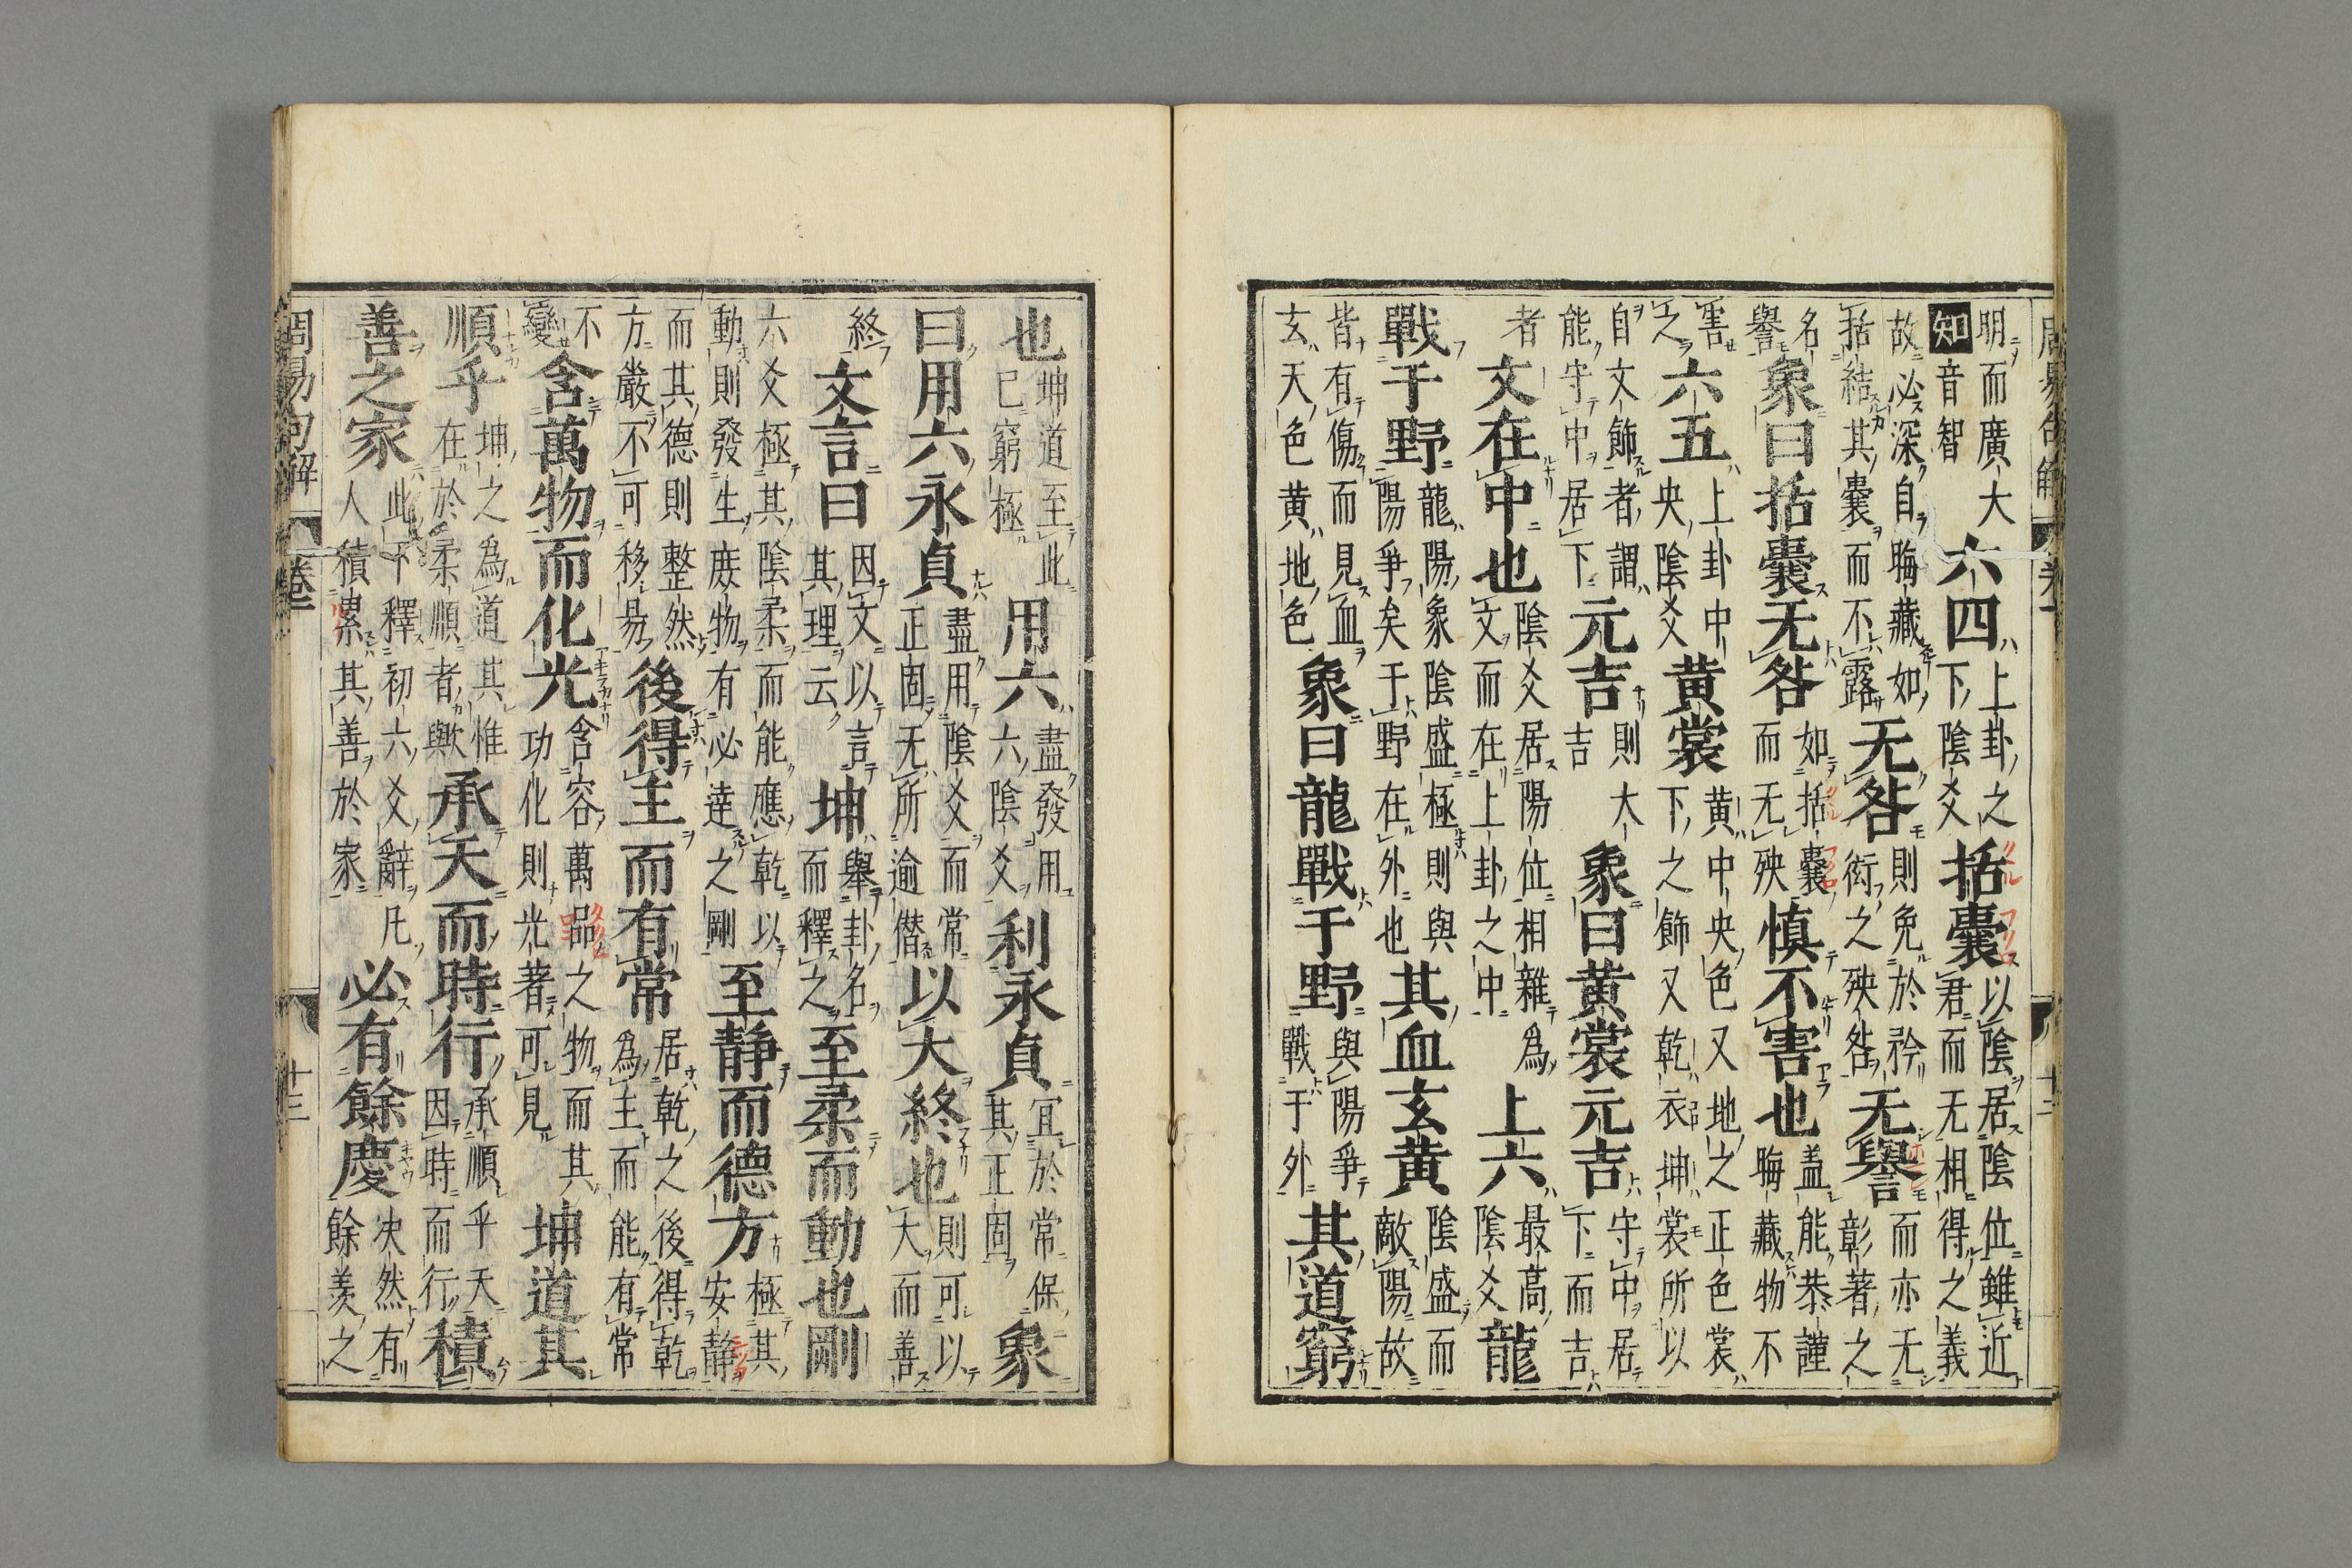 明而廣大
知音智
六四
上卦之
下陰爻
括囊
以陰居陰位雖近
君而无相得之義
故必深自晦藏如
括結其囊而不露
无咎
則免於矜
衒之殃咎
无譽
而亦无
彰著之
名
譽
象曰括囊无咎
如括囊
而无殃
慎不害也
盖能恭謹
晦藏物不
害
之
六五
上卦中
央陰爻
黄裳
黄中央色又地之正色裳
下之飾又乾衣坤裳所以
自文飾者謂
能守中居下
元吉
則大
吉
象曰黄裳元吉
守中居
下而吉
者
文在中也
陰爻居陽位相雜為
文而在上卦之中
上六
最高
陰爻
龍
戰于野
龍陽象陰盛極則與
陽爭矣于野在外也
其血玄黄
陰盛而
敵陽故
皆有傷而見血
玄天色黄地色
象曰龍戰于野
與陽爭
戰于外
其道窮
也
坤道至此
已窮極
用六
盡發用
六陰爻
利永貞
宜於常保
其正固
象
曰用六永貞
盡用陰爻而常
正固无所逾僭
以大終也
則可以
大而善
終
文言曰
因文以言
其理云
坤
舉卦名
而釋之
至柔而動也剛
六爻極其陰柔而能應乾以
動則發生庶物有必達之剛
至静而德方
極其
安静
而其德則整然
方嚴不可移易
後得主而有常
居乾之後得乾
為主而能有常
不
變
含萬物而化光
含容萬品之物而其
功化則光著可見
坤道其
順乎
坤之為道其惟
在於柔順者歟
承天而時行
承順乎天
因時而行
積
善之家
此下釋初六爻辭凡
人積累其善於家
必有餘慶
决然有
餘羨之
周易句解
十三